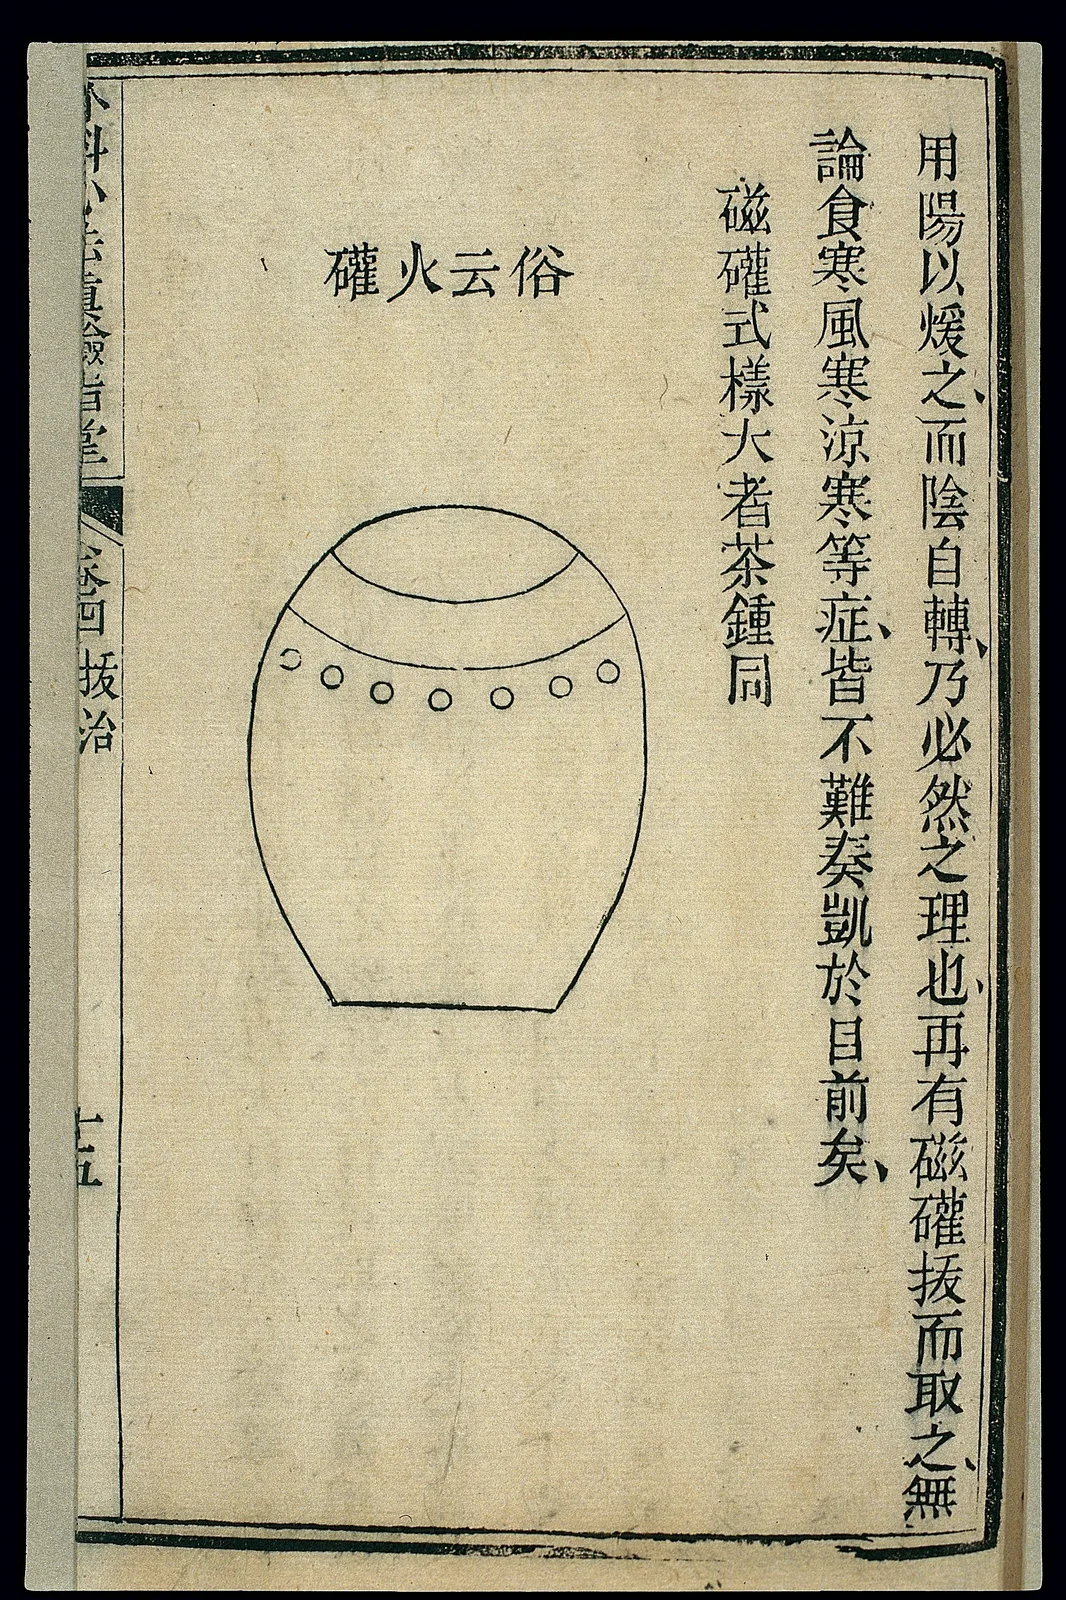 用陽以煖之、而陰自轉、乃必然之理也、再有磁礶拔而取之、無
論食寒風寒涼寒等症、皆不難奏凱於目前矣、
磁礶式樣大者茶鍾同
俗云火礶
卷四 拔治
十五